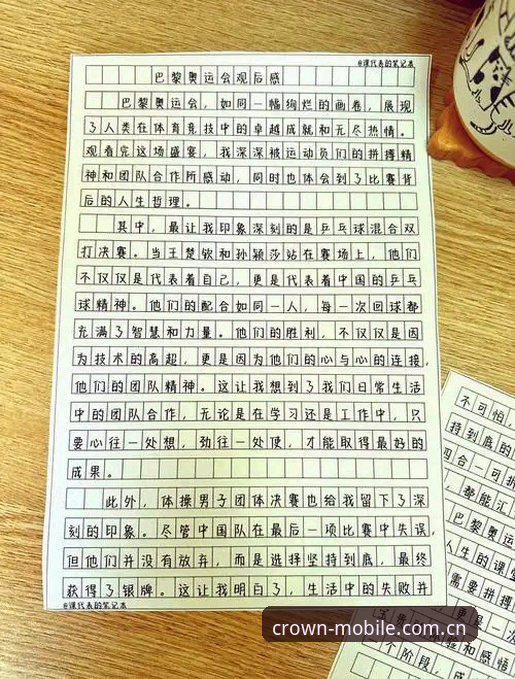 @课代表的笔记本
巴黎奥运会观后感
巴黎奥运会,如同一幅绚烂的画卷,展现
了人类在体育竞技中的卓越成就和无尽热情。
观看完这场盛宴,我深深被运动员们的拼搏精
神和团队合作所感动,同时也体会到了比赛背
后的人生哲理。
其中,最让我印象深刻的是乒乓球混合双
打决赛。当王楚钦和孙颖莎站在赛场上,他们
不仅仅是代表着自己,更是代表着中国的乒乓
球精神。他们的配合如同一人,每一次回球都
充满了智慧和力量。他们的胜利,不仅仅是因
为技术的高超,更是因为他们的心与心的连接,
他们的团队精神。这让我想到了我们日常生活
中的团队合作,无论是在学习还是工作中,只
要心往一处想,劲往一处使,才能取得最好的
成果。
此外,体操男子团体决赛也给我留下了深
刻的印象。尽管中国队在最后一项比赛中失误,
但他们并没有放弃,而是选择坚持到底,最终
获得了银牌。这让我明白了,生活中的失败并
@课代表的笔记本
不可怕,
持到底的
四合一可折
,都能汇
巴黎奥运
人生的课堂
需要拼搏
更是一
和感悟
个阶段,成
crown-mobile.com.cn